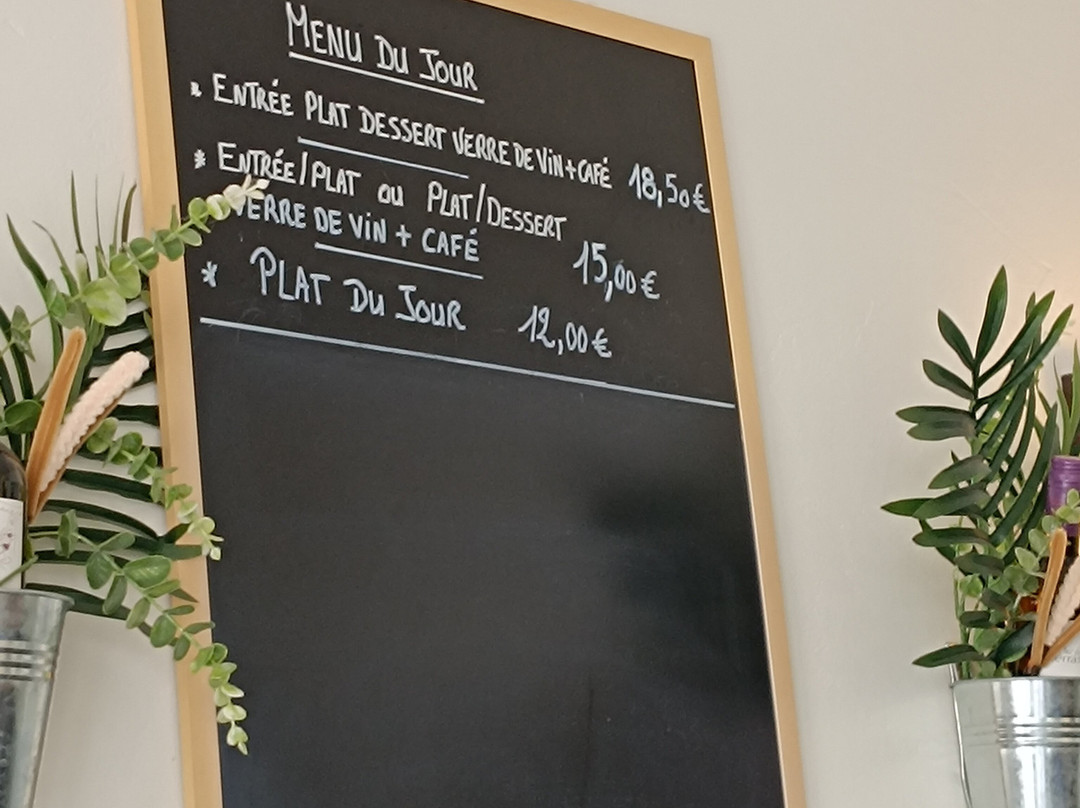 MENU DU JOUR
* ENTRÉE PLAT DESSERT VERRE DE VIN + CAFÉ 18,50 €
* ENTRÉE/PLAT ou PLAT/DESSERT
VERRE DE VIN + CAFÉ 15,00 €
* PLAT DU JOUR 12,00 €